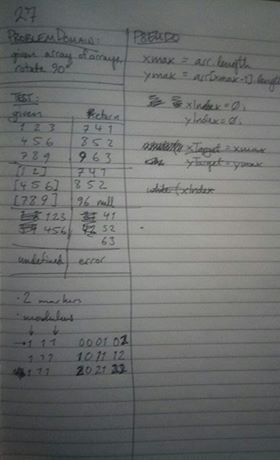 27
PROBLEM DOMAIN:
given array of arrays
rotate 90°
TEST:
given return
1 2 3 7 4 1
4 5 6 8 5 2
7 8 9 9 6 3
[1 2] 7 4 1
[4 5 6] 8 5 2
[7 8 9] 96 null
123 41
456 52
63
undefined error
· 2 markers
· modulus
↓ ↓
→ 1 1 1 00 01 02
1 1 1 10 11 12
1 1 1 20 21 22
PSEUDO
xmax = arr.length
ymax = arr[xmax-1].length
xIndex = 0;
yIndex = 0;
xTarget = xmax
yTarget = ymax
while (xIndex